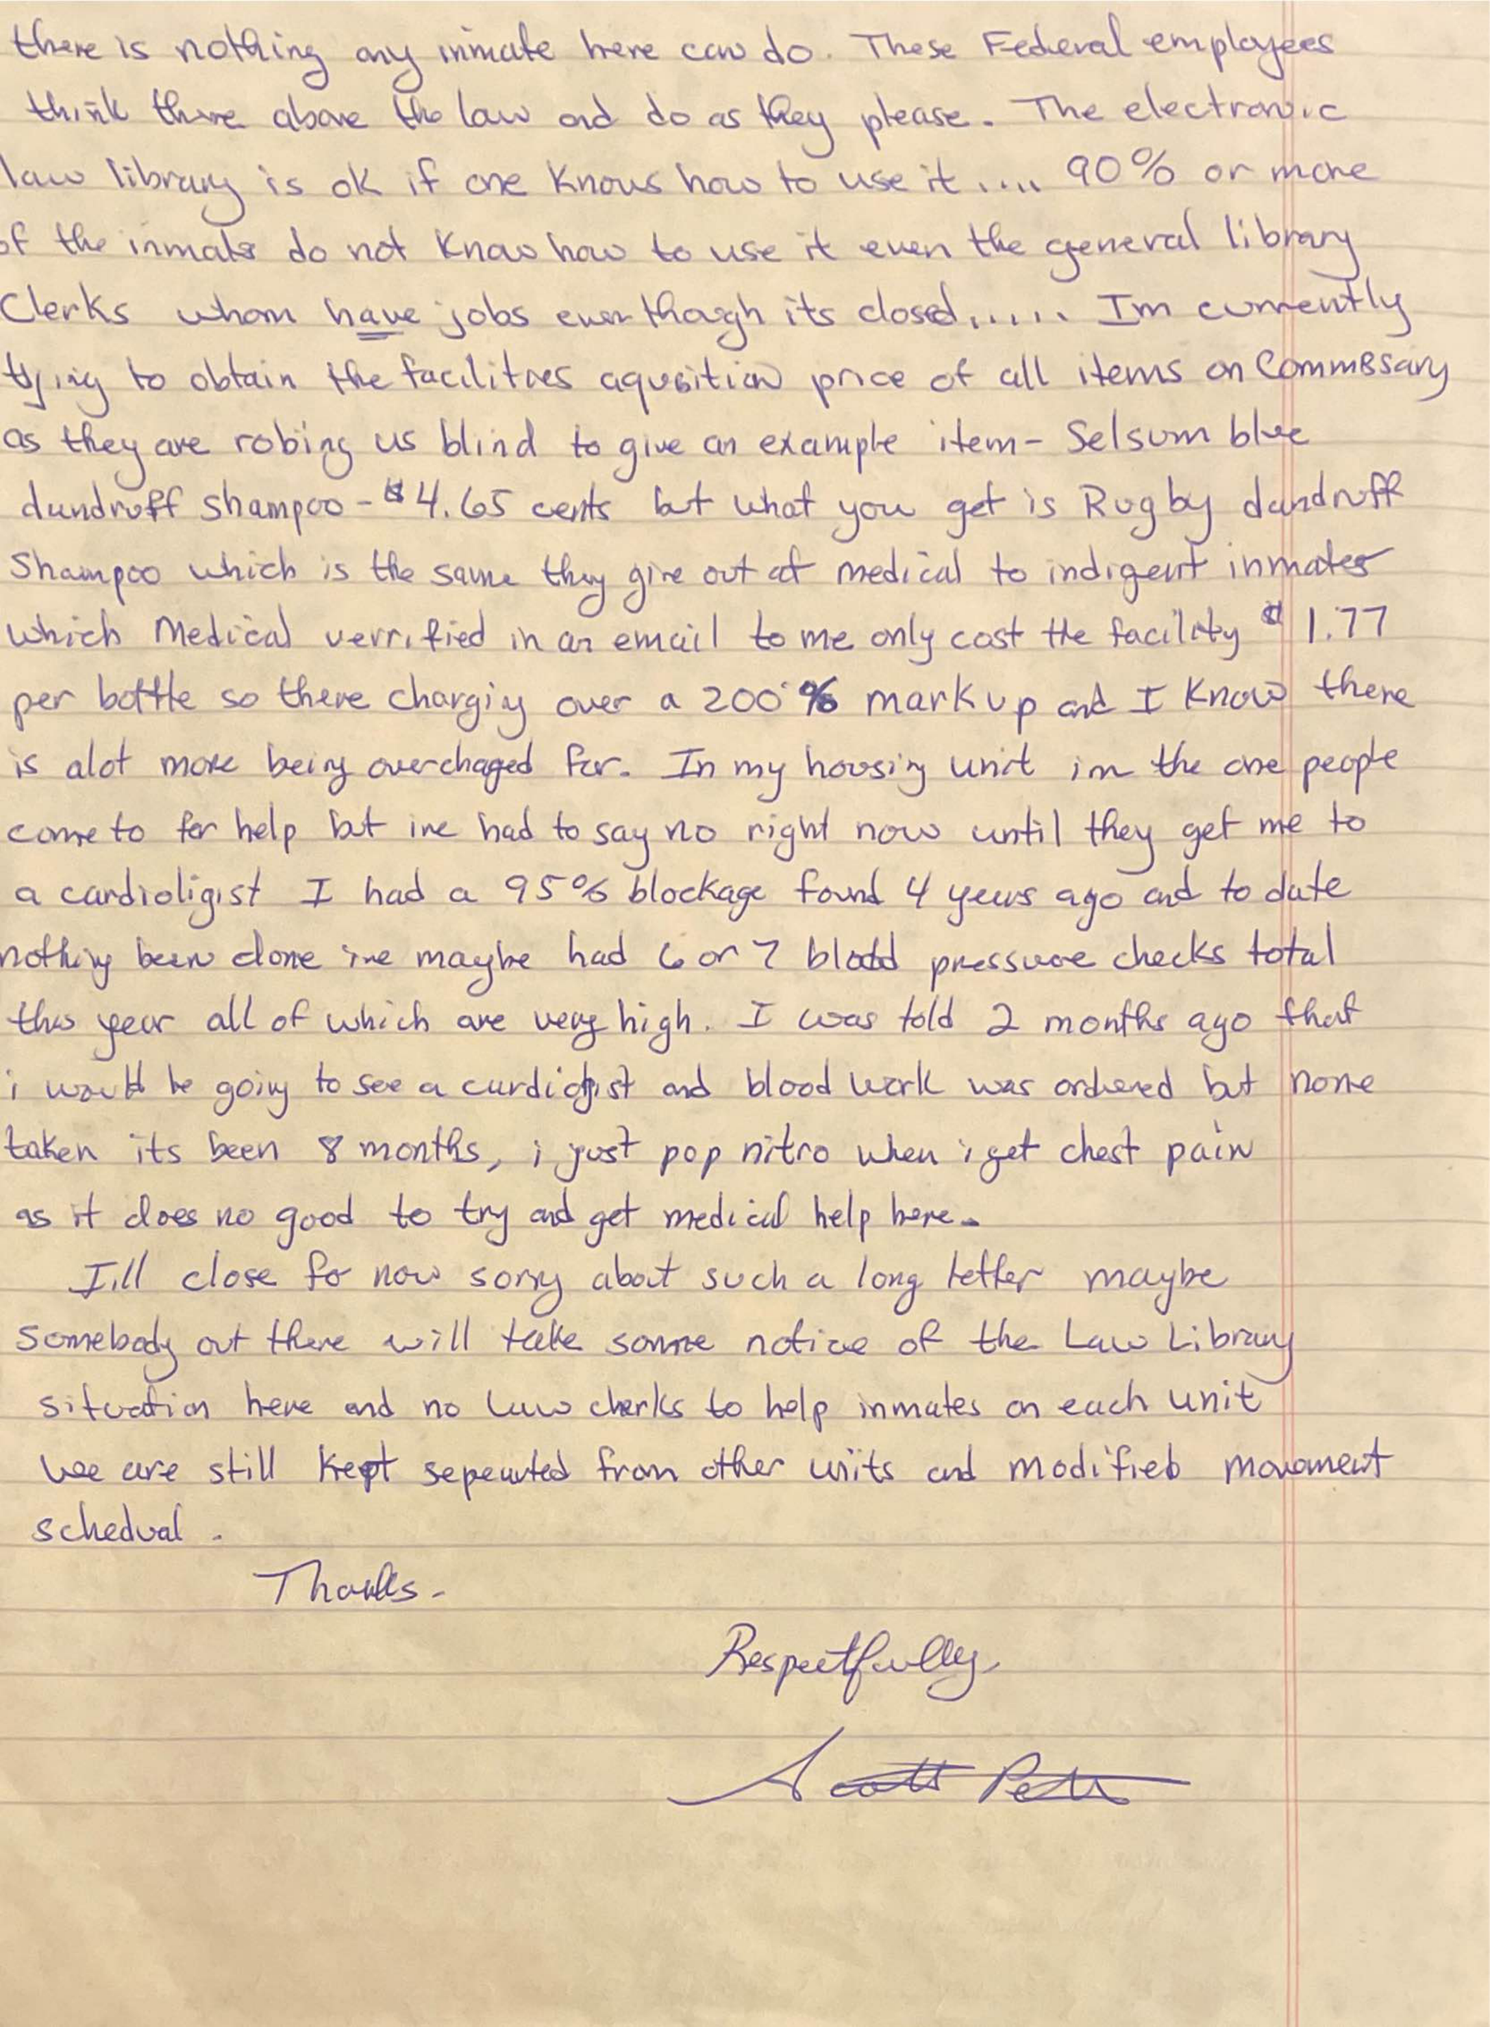 there is nothing any inmate here can do. These Federal employees
think there above the law and do as they please. The electronic
law library is ok if one knows how to use it .... 90% or more
of the inmates do not know how to use it even the general library
Clerks whom have jobs even though its closed..... Im currently
trying to obtain the facilitaes aqusition price of all items on Commissary
as they are robing us blind to give an example item - Selsum blue
dundruff shampoo - $4.65 cents but what you get is Rugby dandruff
Shampoo which is the same they give out at medical to indigent inmates
which Medical verrified in an email to me only cost the facility $1.77
per bottle so there charging over a 200% markup and I know there
is alot more being overchaged for. In my housing unit im the one people
come to for help but ive had to say no right now until they get me to
a cardioligist I had a 95% blockage found 4 years ago and to date
nothing been done ive maybe had 6 or 7 blood pressure checks total
this year all of which are very high. I was told 2 months ago that
i would be going to see a curdiogist and blood work was ordered but none
taken its been 8 months, i just pop nitro when i get chest pain
as it does no good to try and get medical help here.
I,ll close fo now sorry about such a long letter maybe
Somebody out there will take some notice of the Law Library
situation here and no law clerks to help inmates on each unit
we are still kept seperated from other units and modified movement
schedual.
Thanks.
Respectfully,
Scott